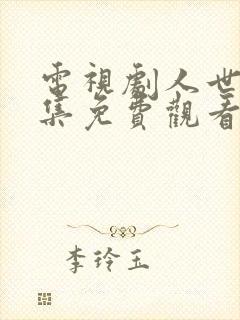 電視劇人世
集免費觀看
李玲玉